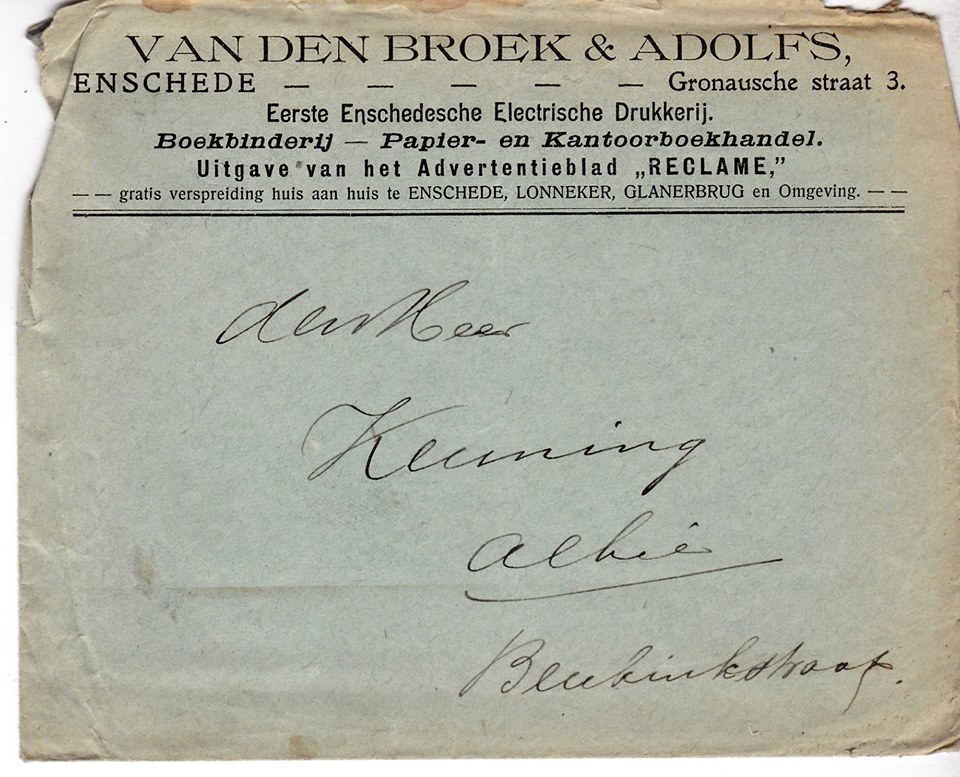 VAN DEN BROEK & ADOLFS,
ENSCHEDE — — — — — Gronausche straat 3.
Eerste Enschedesche Electrische Drukkerij.
Boekbinderij — Papier- en Kantoorboekhandel.
Uitgave van het Advertentieblad „RECLAME,”
— — gratis verspreiding huis aan huis te ENSCHEDE, LONNEKER, GLANERBRUG en Omgeving. — —
den Heer
Keuning
Alhier